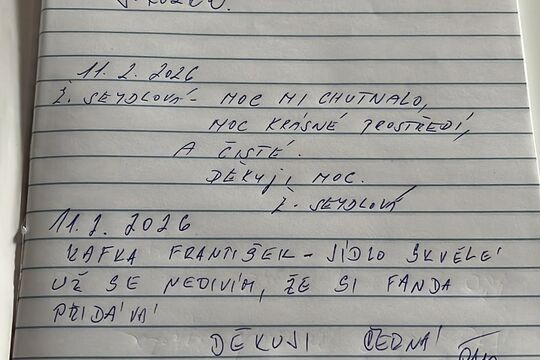 11. 2. 2026
Ž. SEYDLOVÁ - MOC MI CHUTNALO,
MOC KRÁSNÉ PROSTŘEDÍ,
A ČISTÉ.
DĚKUJI MOC.
Ž. SEYDLOVÁ
11. 2. 2026
KAFKA FRANTIŠEK - JÍDLO SKVĚLÉ
UŽ SE NEDIVÍM, ŽE SI FANDA
PŘIDÁVÁ
DĚKUJI ČERNÁ